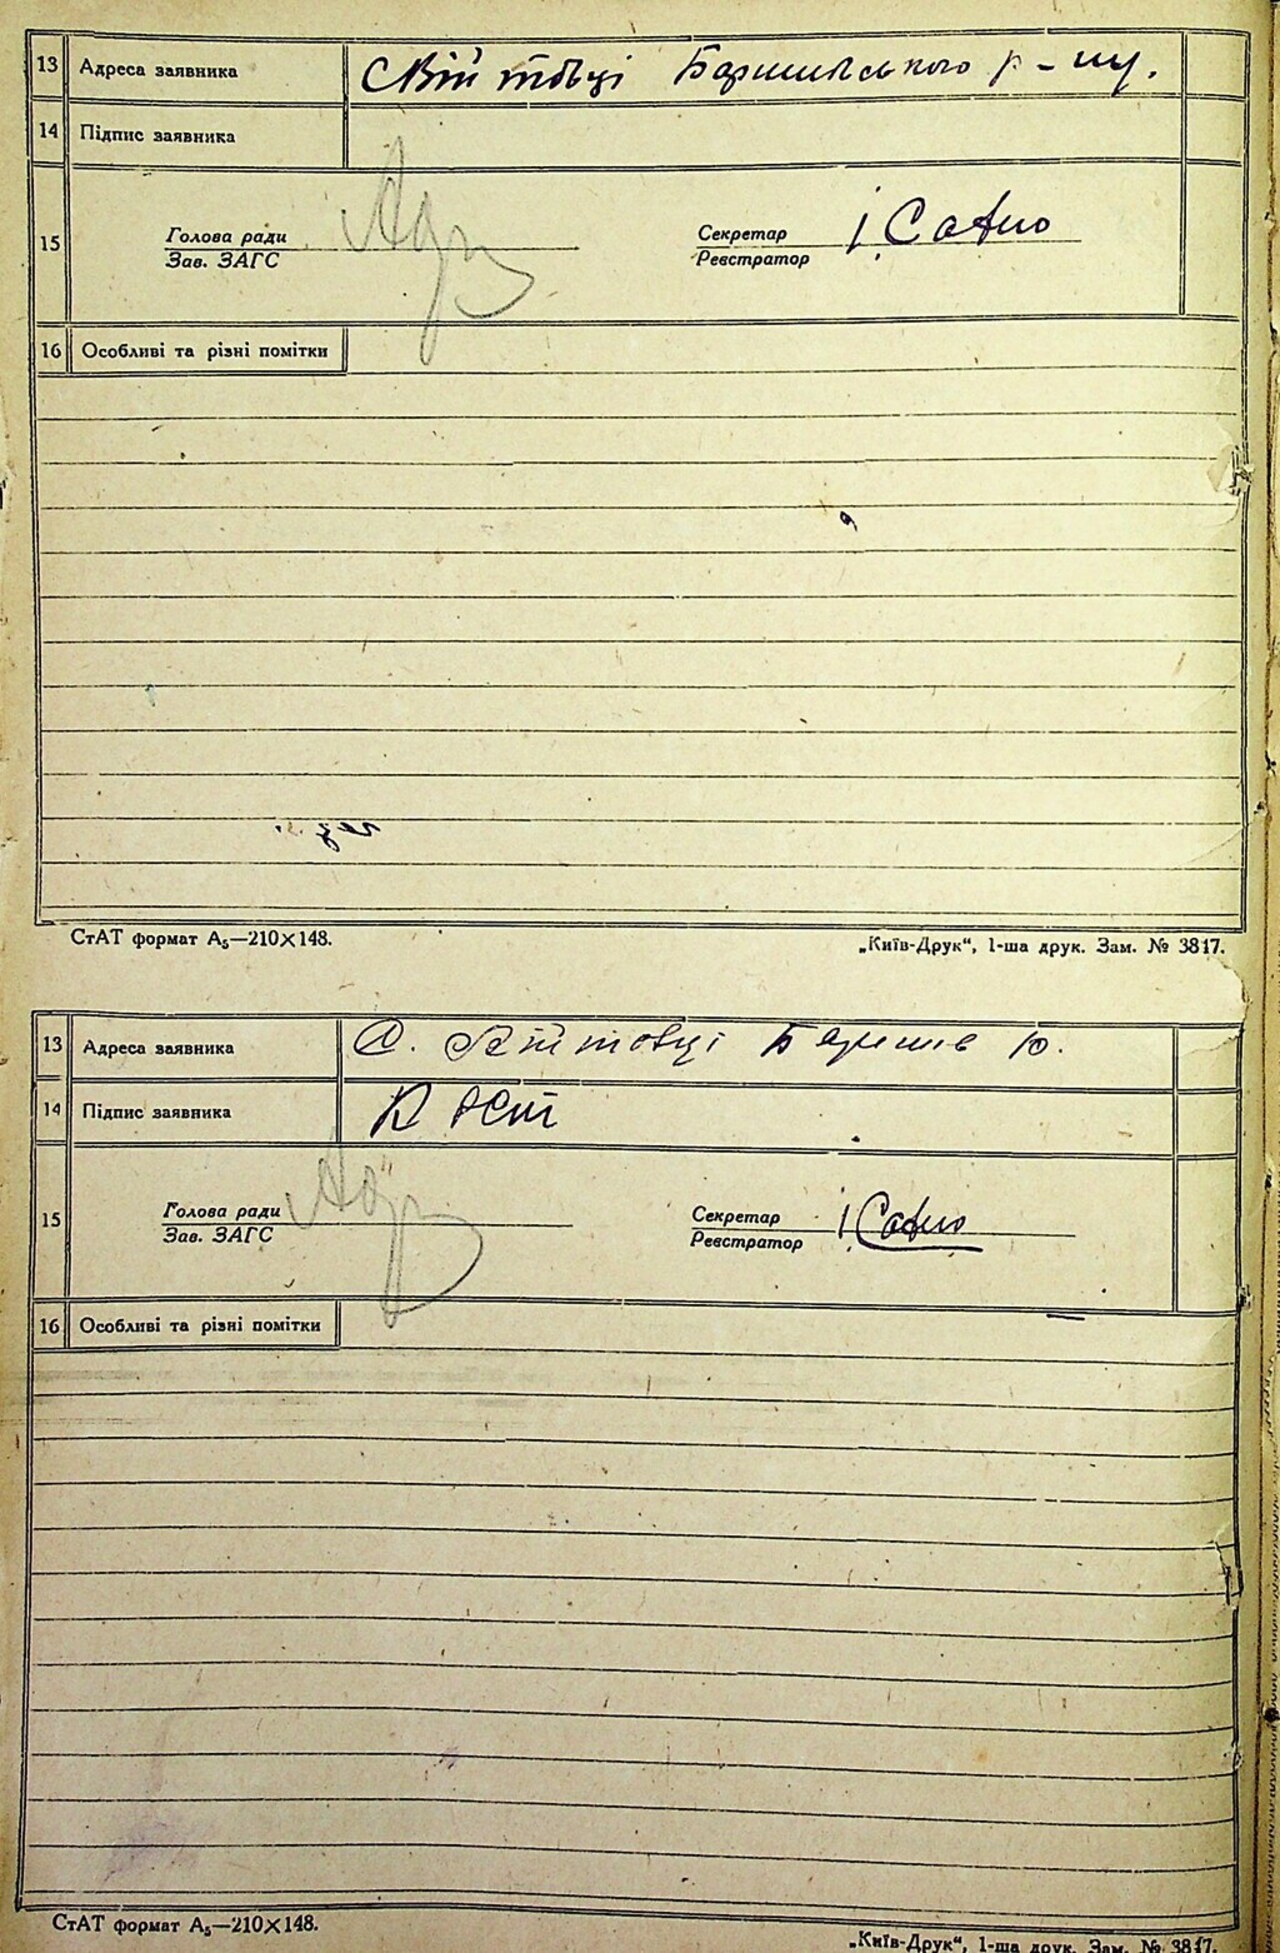 13 Адреса заявника с. Війтовці Баришівського р-ну.
14 Підпис заявника
15 Голова ради Секретар
Зав. ЗАГС Реєстратор
16 Особливі та різні помітки
СтАТ формат А5—210×148. „Київ-Друк“, 1-ша друк. Зам. № 3817.
13 Адреса заявника С. Війтовці Баришів р.
14 Підпис заявника
15 Голова ради Секретар
Зав. ЗАГС Реєстратор
16 Особливі та різні помітки
СтАТ формат А5—210×148.
„Київ-Друк“, 1-ша друк. Зам. № 3817.